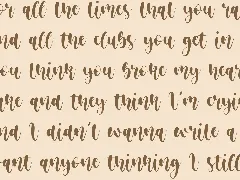 or all the times that you ra
nd all the clubs you get in
ou think you broke my hear
ake and they think I'm cryi
nd I didn't wanna write a
ant anyone thinking I still